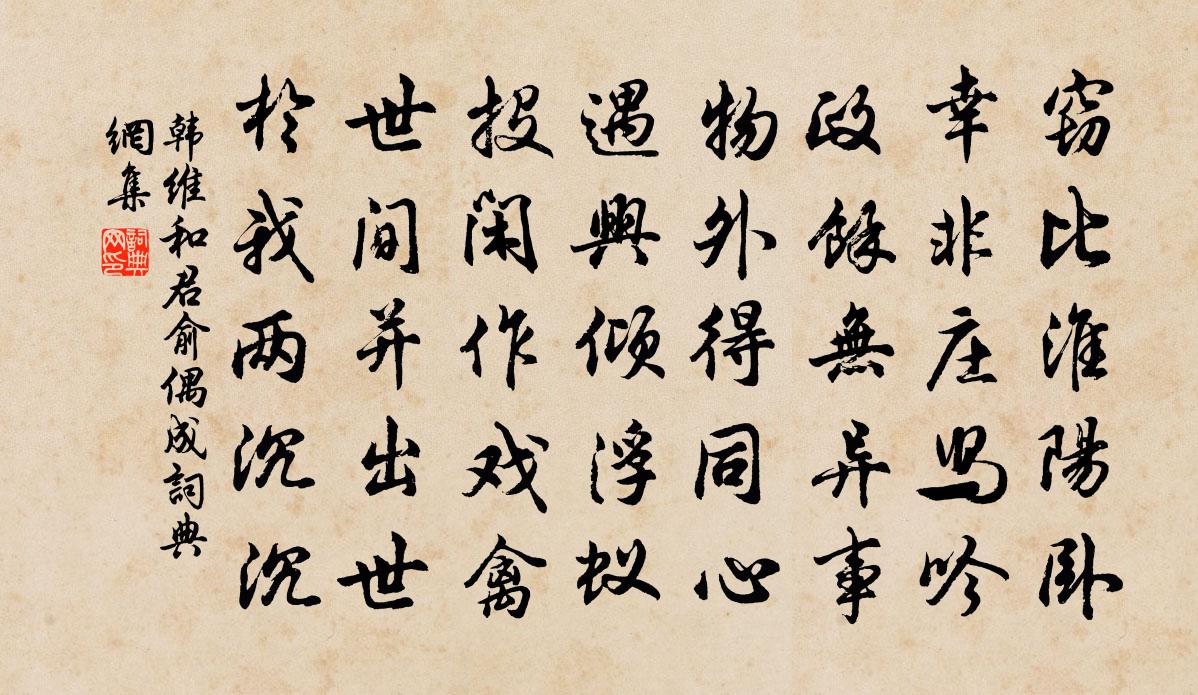 窃比淮陽卧
幸非庄舄吟
政餘無异事
物外得同心
遇興傾浮蚁
投閑作戏禽
世间并出世
於我两沉沉
韩维和君俞偶成詞典
網集
詞典
网印